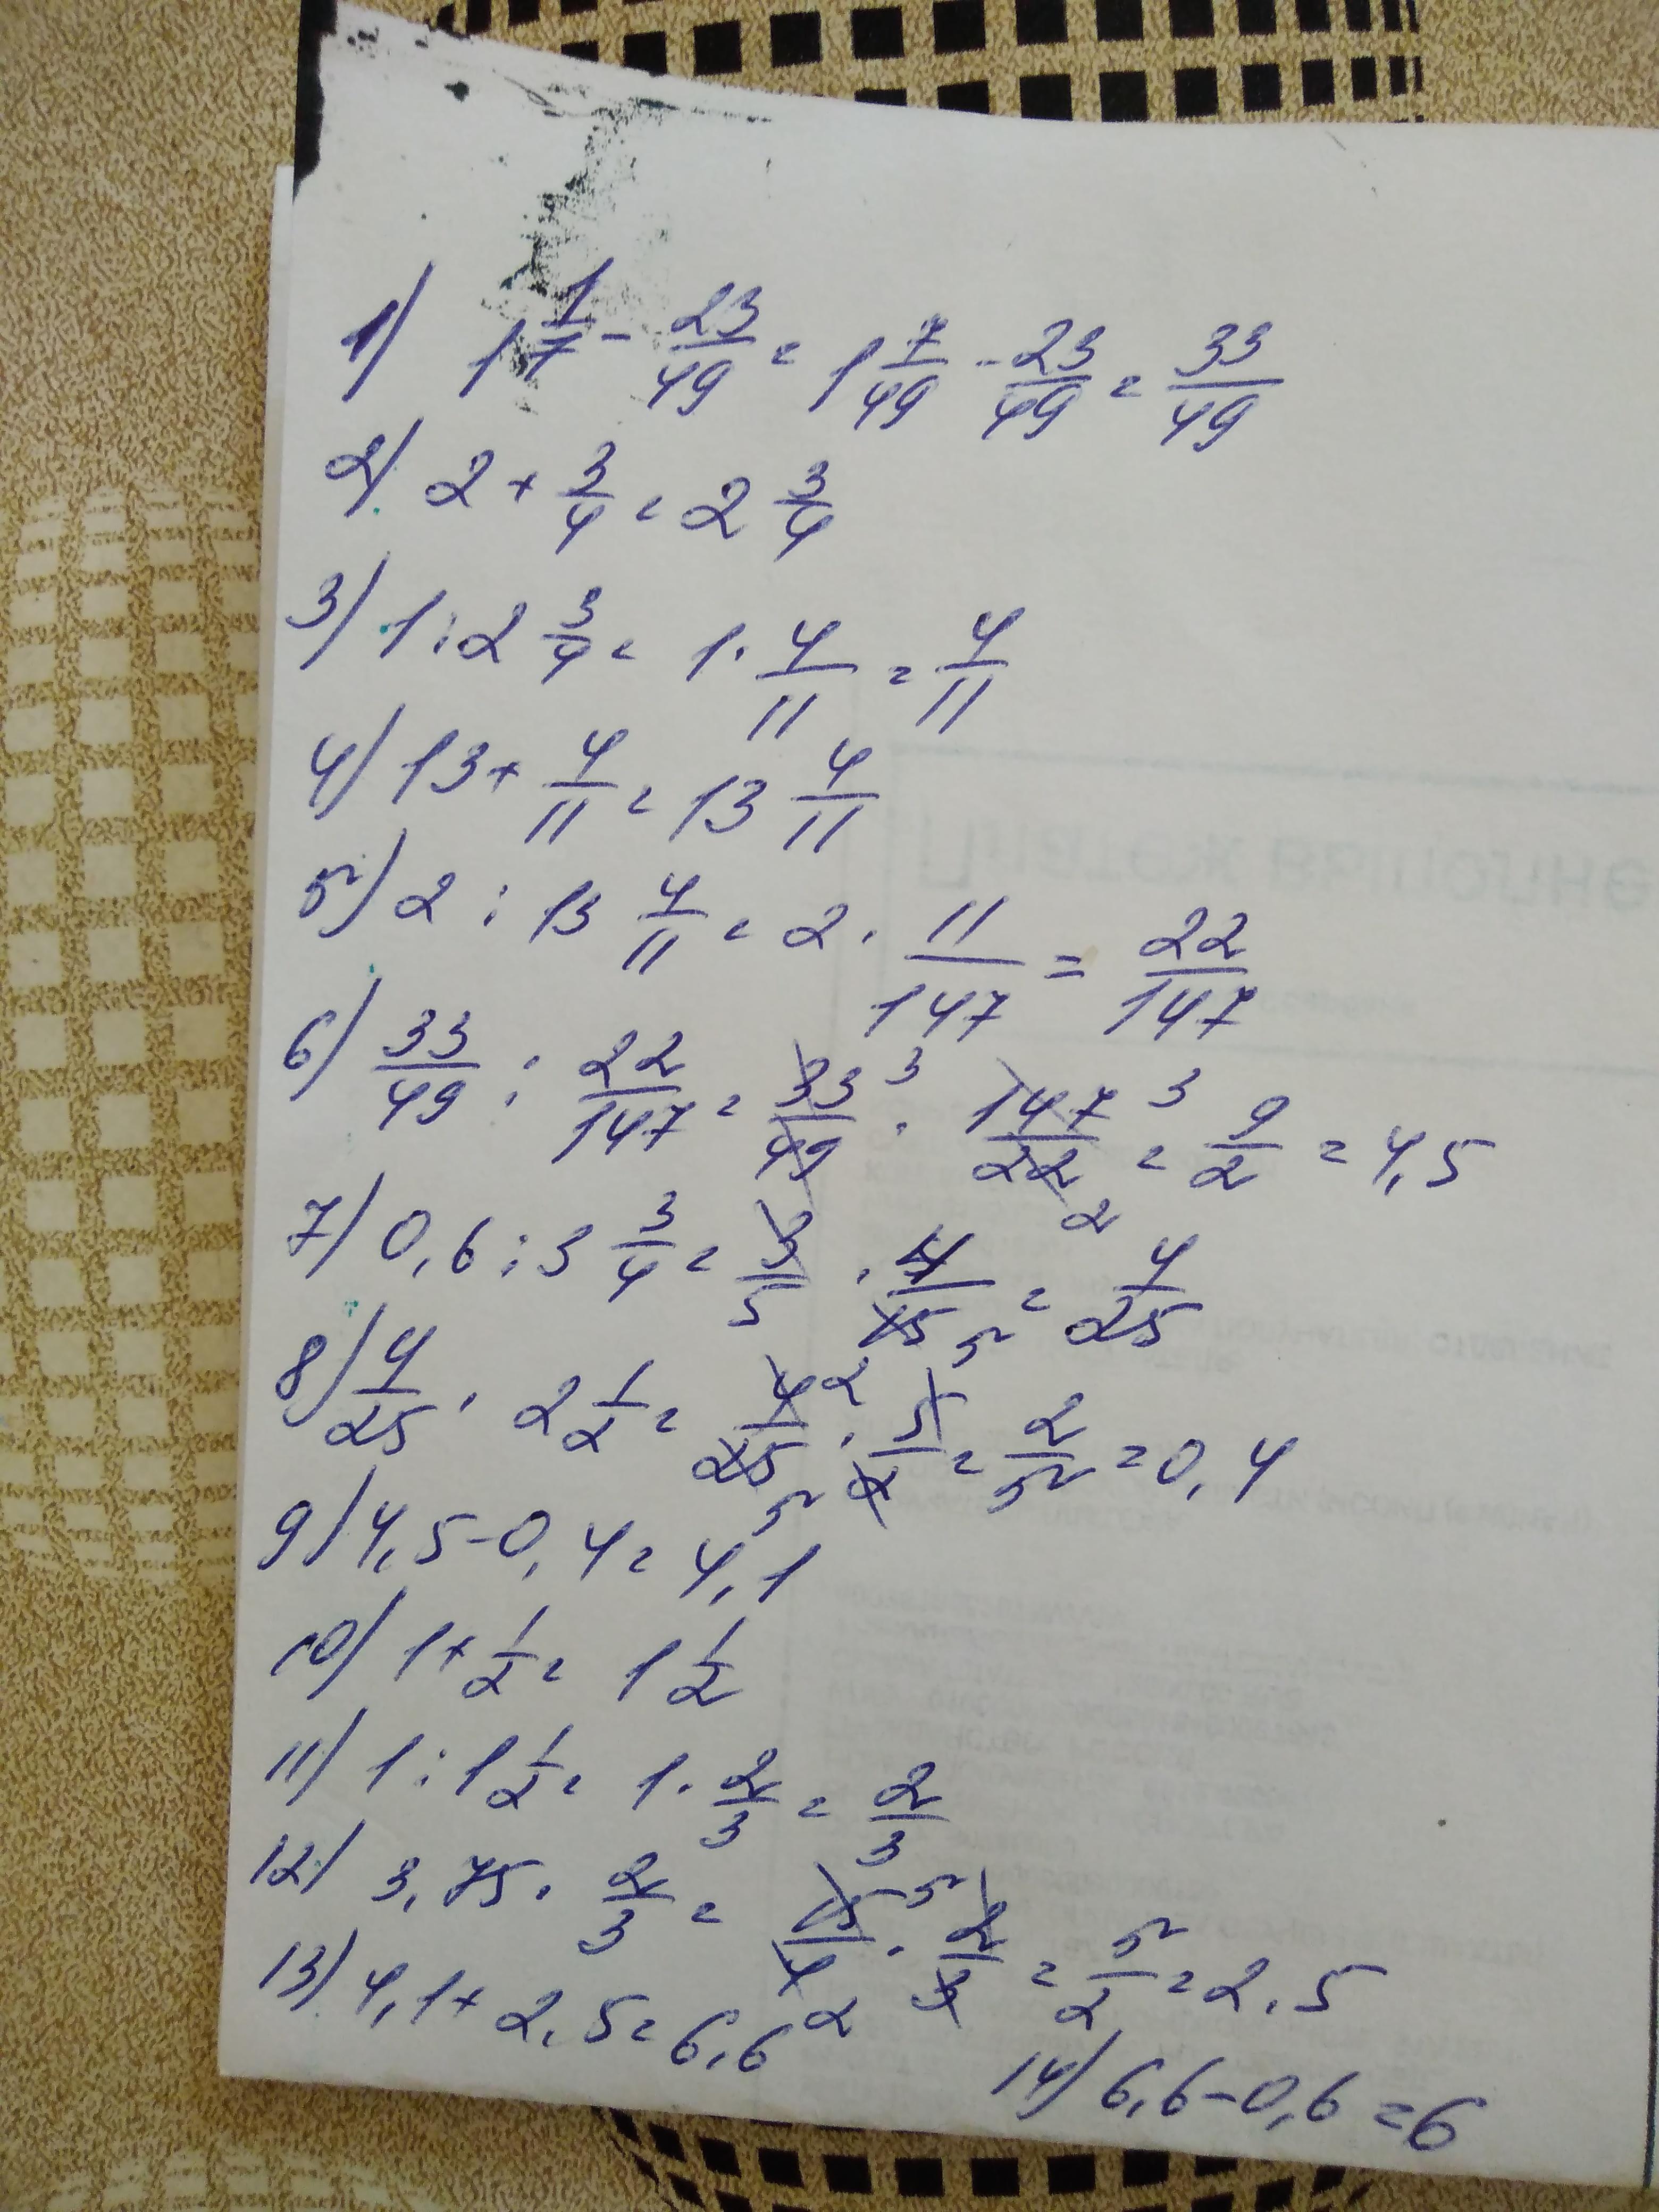 1) 1 1/7 - 23/49 = 1 7/49 - 23/49 = 33/49
2) 2 + 3/4 = 2 3/4
3) 1 : 2 3/4 = 1 · 4/11 = 4/11
4) 13 + 4/11 = 13 4/11
5) 2 : 13 4/11 = 2 · 11/147 = 22/147
6) 33/49 : 22/147 = 33/49 3 · 147/22 3 2 = 9/2 = 4,5
7) 0,6 : 3 3/4 = 3/5 · 4/15 5 = 4/25
8) 4/25 · 2 1/2 = 4/25 2 5 · 5/2 = 2/5 = 0,4
9) 4,5 - 0,4 = 4,1
10) 1 + 1/2 = 1 1/2
11) 1 : 1 1/2 = 1 · 2/3 = 2/3
12) 3,75 · 2/3 = 15/4 5 2 · 2/3 = 5/2 = 2,5
13) 4,1 + 2,5 = 6,6
14) 6,6 - 0,6 = 6